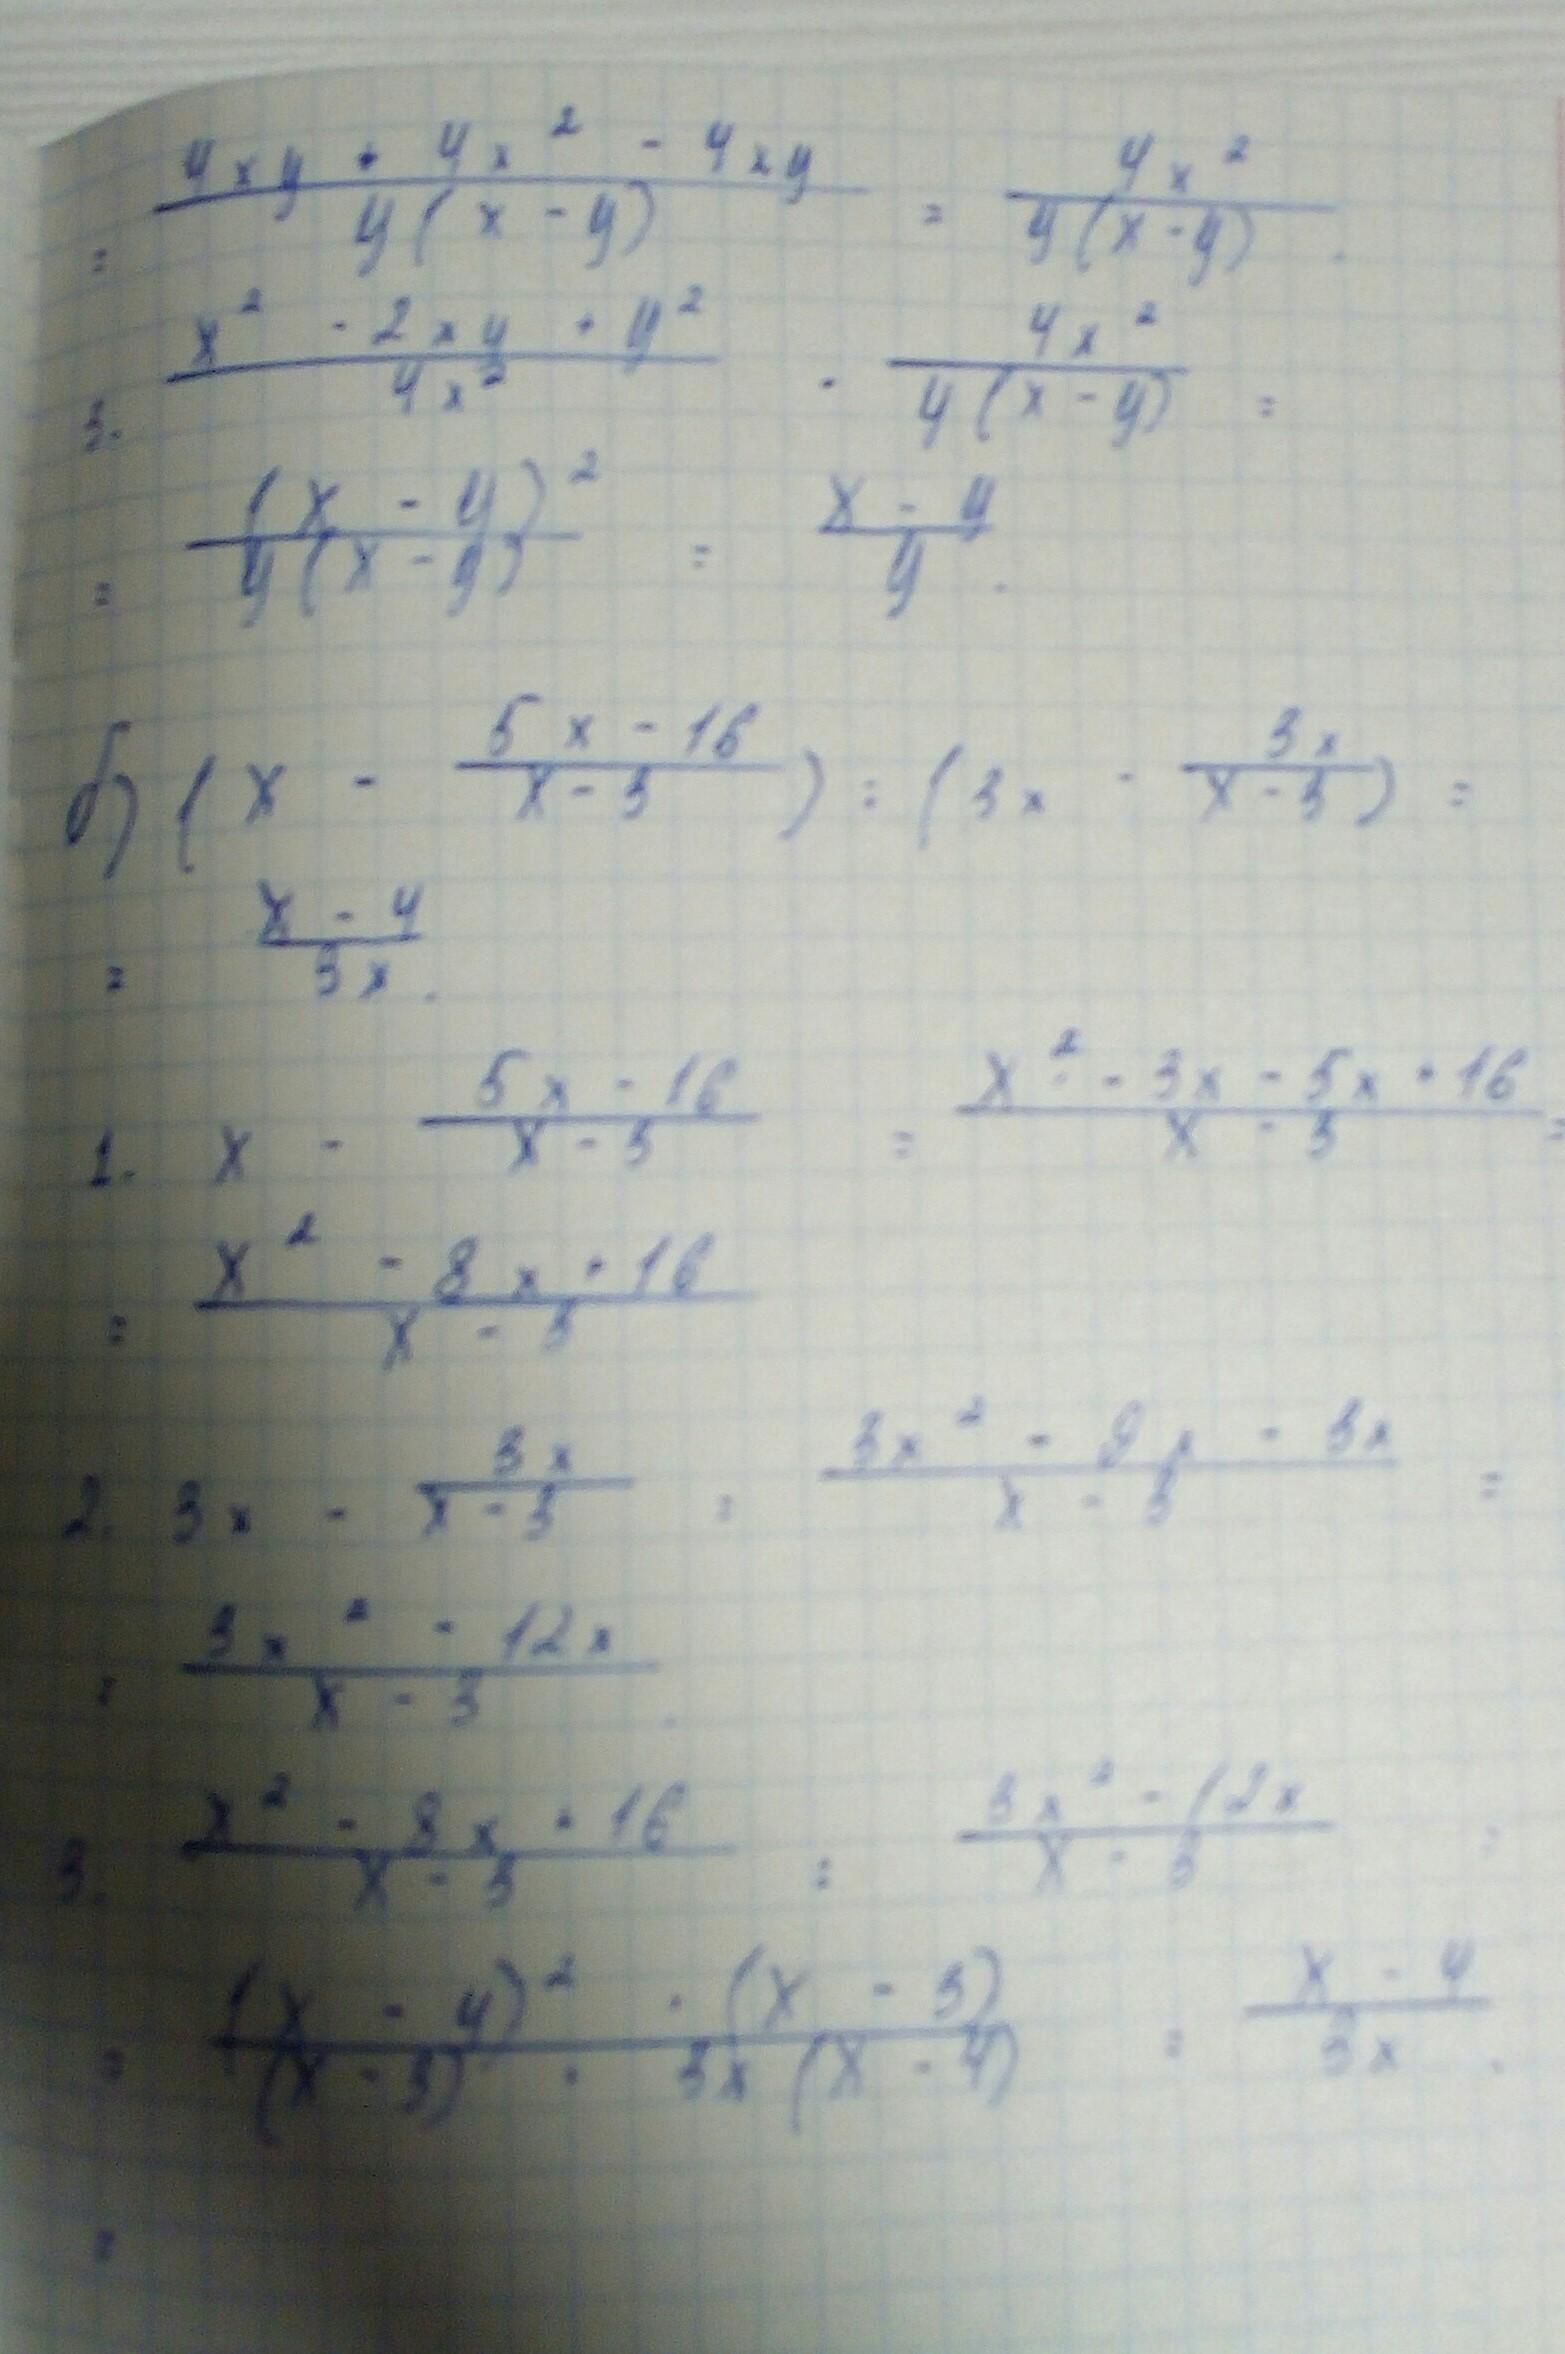 = (4xy + 4x² - 4xy)/(y(x - y)) = 4x²/(y(x - y)).
3. (x² - 2xy + y²)/(4x²) · 4x²/(y(x - y)) =
= (x - y)²/(y(x - y)) = (x - y)/y.
б) (x - (5x - 16)/(x - 3)) : (3x - 3x/(x - 3)) =
= (x - 4)/(3x).
1. x - (5x - 16)/(x - 3) = (x² - 3x - 5x + 16)/(x - 3) =
= (x² - 8x + 16)/(x - 3)
2. 3x - 3x/(x - 3) = (3x² - 9x - 3x)/(x - 3) =
= (3x² - 12x)/(x - 3).
3. (x² - 8x + 16)/(x - 3) : (3x² - 12x)/(x - 3) =
= ((x - 4)² · (x - 3))/((x - 3) · 3x(x - 4)) = (x - 4)/(3x).
=